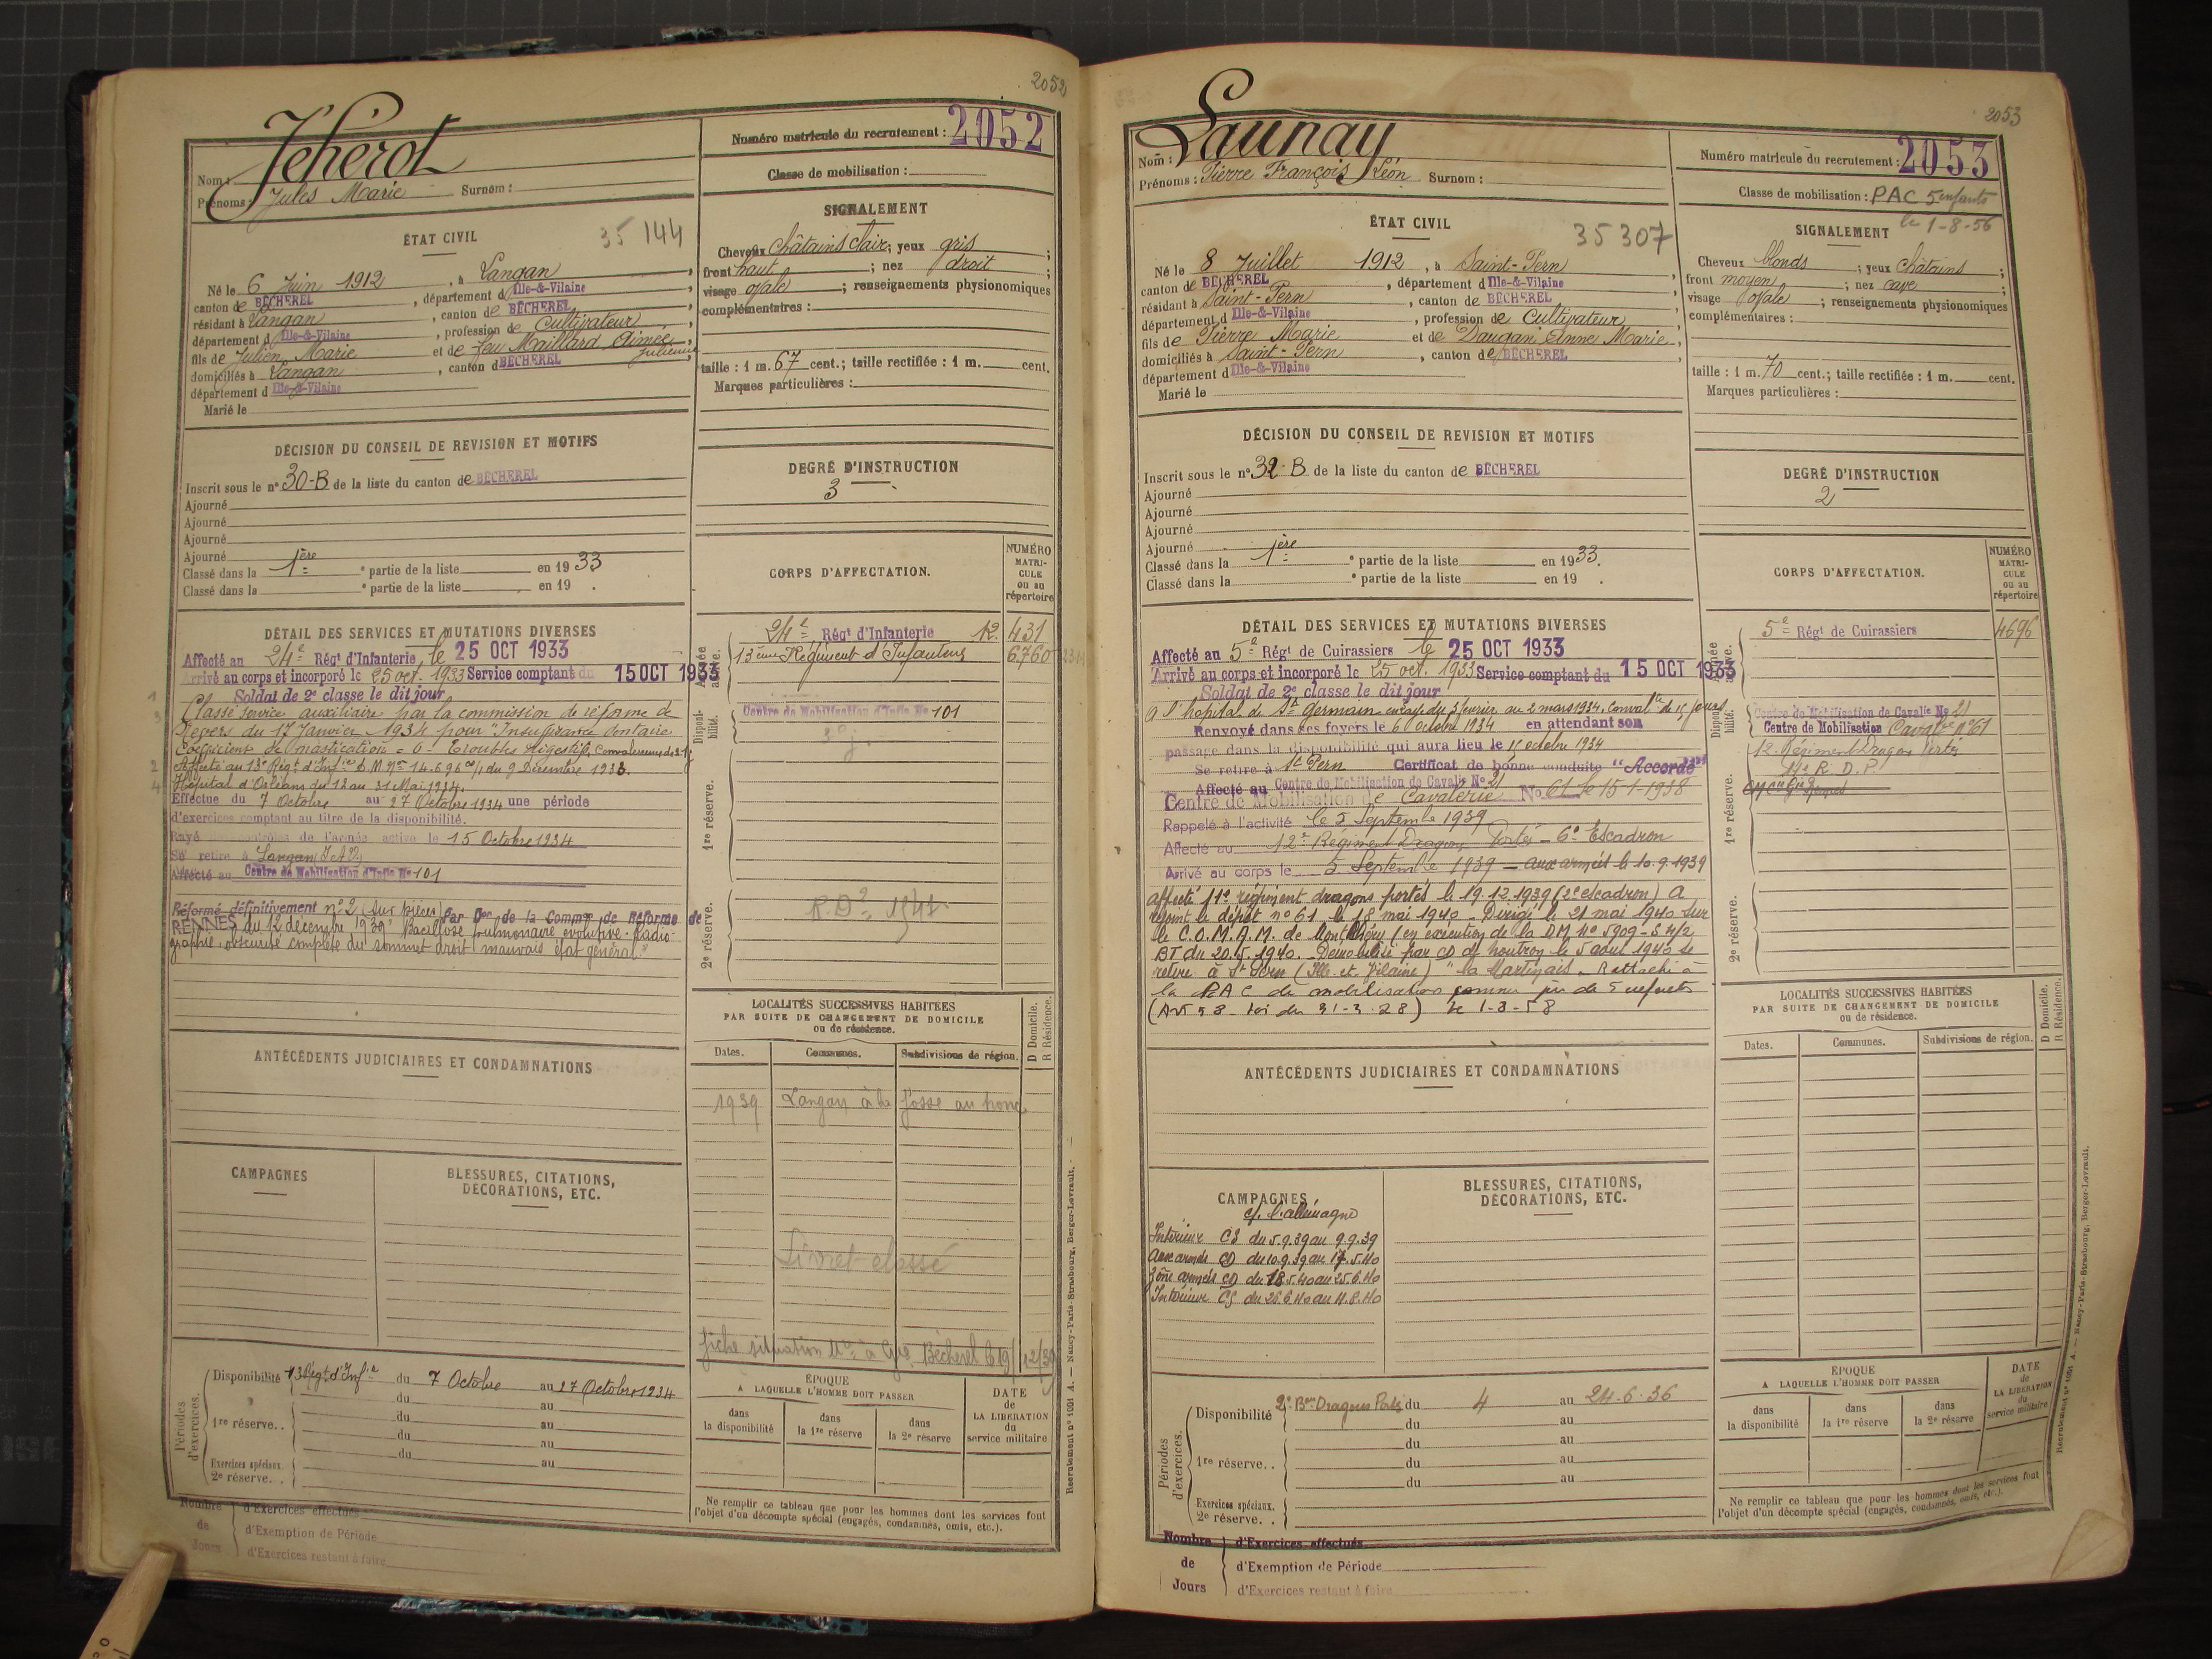 2052
Jéhérol
Nom :
Prénoms : Jules Marie Surnom :
Numéro matricule du recrutement : 2052
Classe de mobilisation :
ÉTAT CIVIL
35 144
Né le 6 Juin 1912, à Langan,
canton de BÉCHEREL, département d Ille-&-Vilaine,
résidant à Langan, canton de BÉCHEREL,
département d Ille-&-Vilaine, profession de Cultivateur,
fils de Julien Marie et de feu Maillard Aimée Julienne,
domiciliés à Langan, canton d BÉCHEREL,
département d Ille-&-Vilaine
Marié le
SIGNALEMENT
Cheveux châtains clair; yeux gris;
front haut; nez droit;
visage ovale; renseignements physionomiques
complémentaires :
taille : 1 m. 67 cent.; taille rectifiée : 1 m. cent.
Marques particulières :
DÉCISION DU CONSEIL DE REVISION ET MOTIFS
Inscrit sous le n° 30-B de la liste du canton de BÉCHEREL
Ajourné
Ajourné
Ajourné
Ajourné
Classé dans la 1ère e partie de la liste en 1933
Classé dans la e partie de la liste en 19 .
DEGRÉ D'INSTRUCTION
3
CORPS D'AFFECTATION.
NUMÉRO MATRICULE ou au répertoire
24e Régt d'Infanterie 12. 431
13ème Régiment d'Infanterie 6760
Centre de Mobilisation d'Infie No 101
Armée active.
Disponibilité.
1re réserve.
2e réserve.
DÉTAIL DES SERVICES ET MUTATIONS DIVERSES
Affecté au 24e Régt d'Infanterie, le 25 OCT 1933
Arrivé au corps et incorporé le 25 oct. 1933 Service comptant du 15 OCT 1933
Soldat de 2e classe le dit jour
1 Classé service auxiliaire par la commission de réforme de
3 Nevers du 17 Janvier 1934 pour "Insuffisance dentaire
Coefficient de mastication = 6 - Troubles digestifs.
2 Affecté au 13e Régt d'Infie D.M. No 14.696 du 9 Décembre 1933.
4 Hôpital d'Orléans du 12 au 31 Mai 1934.
Effectue du 7 Octobre au 27 Octobre 1934 une période
d'exercices comptant au titre de la disponibilité.
Rayé des contrôles de l'armée active le 15 Octobre 1934
Se retire à Langan (I et V)
Affecté au Centre de Mobilisation d'Infie No 101
Réformé définitivement n°2 (sur pièces) Par Don de la Common de Réforme de
RENNES du 12 décembre 1939 "Bacillose pulmonaire évolutive. Radio-
graphie, obscurité complète du sommet droit mauvais état général."
LOCALITÉS SUCCESSIVES HABITÉES
PAR SUITE DE CHANGEMENT DE DOMICILE
ou de résidence.
Dates. Communes. Subdivisions de région. D Domicile. R Résidence.
1939 Langan à la fosse au
Livret classé
fiche situation Mre à Gie Bécherel le 19/12/39
ANTÉCÉDENTS JUDICIAIRES ET CONDAMNATIONS
CAMPAGNES
BLESSURES, CITATIONS,
DÉCORATIONS, ETC.
Périodes d'exercices.
Disponibilité 13 Régt d'Infie du 7 Octobre au 27 Octobre 1934
du au
1re réserve.. du au
du au
du au
Exercices spéciaux.
2e réserve. .
ÉPOQUE
A LAQUELLE L'HOMME DOIT PASSER
dans la disponibilité
dans la 1re réserve
dans la 2e réserve
DATE de LA LIBÉRATION du service militaire
Ne remplir ce tableau que pour les hommes dont les services font
l'objet d'un décompte spécial (engagés, condamnés, omis, etc.).
Nombre de Jours
d'Exercices effectués
d'Exemption de Période
d'Exercices restant à faire
Recrutement n° 1051 A. — Nancy-Paris-Strasbourg, Berger-Levrault.
2053
Launay
Nom :
Prénoms : Pierre François Léon Surnom :
Numéro matricule du recrutement : 2053
Classe de mobilisation : PAC 5 enfants
le 1-8-56
ÉTAT CIVIL
35 307
Né le 8 Juillet 1912, à Saint-Pern,
canton de BÉCHEREL, département d Ille-&-Vilaine,
résidant à Saint-Pern, canton de BÉCHEREL
département d Ille-&-Vilaine, profession de Cultivateur,
fils de Pierre Marie et de Daugan Anne Marie,
domiciliés à Saint-Pern, canton de BÉCHEREL,
département d Ille-&-Vilaine
Marié le
SIGNALEMENT
Cheveux blonds; yeux châtains;
front moyen; nez cave;
visage ovale; renseignements physionomiques
complémentaires :
taille : 1 m. 70 cent.; taille rectifiée : 1 m. cent.
Marques particulières :
DÉCISION DU CONSEIL DE REVISION ET MOTIFS
Inscrit sous le n° 32-B de la liste du canton de BÉCHEREL
Ajourné
Ajourné
Ajourné
Ajourné
Classé dans la 1ère e partie de la liste en 1933.
Classé dans la e partie de la liste en 19 .
DEGRÉ D'INSTRUCTION
2
CORPS D'AFFECTATION.
NUMÉRO MATRICULE ou au répertoire
5e Régt de Cuirassiers 4696
Centre de Mobilisation de Cavalie No 21
Centre de Mobilisation Cavalie n°61
12e Régiment Dragons Portés
11e R.D.P.
Disponibilité.
1re réserve.
2e réserve.
DÉTAIL DES SERVICES ET MUTATIONS DIVERSES
Affecté au 5e Régt de Cuirassiers le 25 OCT 1933
Arrivé au corps et incorporé le 25 oct. 1933 Service comptant du 15 OCT 1933
Soldat de 2e classe le dit jour
A l'hôpital de St Germain en Laye du 3 février au 2 mars 1934. Convalce de 15 jours.
Renvoyé dans ses foyers le 6 octobre 1934 en attendant son
passage dans la disponibilité qui aura lieu le 15 octobre 1934
Se retire à St Pern Certificat de bonne conduite "Accordé"
Affecté au Centre de Mobilisation de Cavalie No 21
Centre de Mobilisation de Cavalerie No 61 le 15-1-1938
Rappelé à l'activité le 5 Septembre 1939
Affecté au 12e Régiment Dragons Portés - 6e Escadron
Arrivé au corps le 5 Septembre 1939 - aux armées le 10.9.1939
affecté 11e régiment dragons portés le 19.12.1939 (2e escadron) A
rejoint le dépôt n°61 le 18 mai 1940 - Dirigé le 21 mai 1940 sur
le C.O.M.A.M. de Montlhéry (en exécution de la DM No 5909-S 4/2
BT du 20.5.1940. Démobilisé par CD de Nontron le 5 aout 1940 se
retire à St Pern (Ille et Vilaine) "la Martinais". Rattaché à
la PAC de mobilisation comme père de 5 enfants
(Art 58 - loi du 31-3-28) le 1-8-58
LOCALITÉS SUCCESSIVES HABITÉES
PAR SUITE DE CHANGEMENT DE DOMICILE
ou de résidence.
Dates. Communes. Subdivisions de région. D Domicile. R Résidence.
ANTÉCÉDENTS JUDICIAIRES ET CONDAMNATIONS
CAMPAGNES
c/. l'allemagne
Intérieur CS du 5.9.39 au 9.9.39
Aux armées CD du 10.9.39 au 17.5.40
Zône armées CD du 18.5.40 au 25.6.40
Intérieur CS du 26.6.40 au 4.8.40
BLESSURES, CITATIONS,
DÉCORATIONS, ETC.
Périodes d'exercices.
Disponibilité 2e Bon Dragons Portés du 4 au 24.6.36
du au
1re réserve.. du au
du au
du au
Exercices spéciaux.
2e réserve. .
ÉPOQUE
A LAQUELLE L'HOMME DOIT PASSER
dans la disponibilité
dans la 1re réserve
dans la 2e réserve
DATE de LA LIBÉRATION du service militaire
Ne remplir ce tableau que pour les hommes dont les services font
l'objet d'un décompte spécial (engagés, condamnés, omis, etc.).
Nombre de Jours
d'Exercices effectués
d'Exemption de Période
d'Exercices restant à faire
Recrutement n° 1051 A. — Nancy-Paris-Strasbourg, Berger-Levrault.